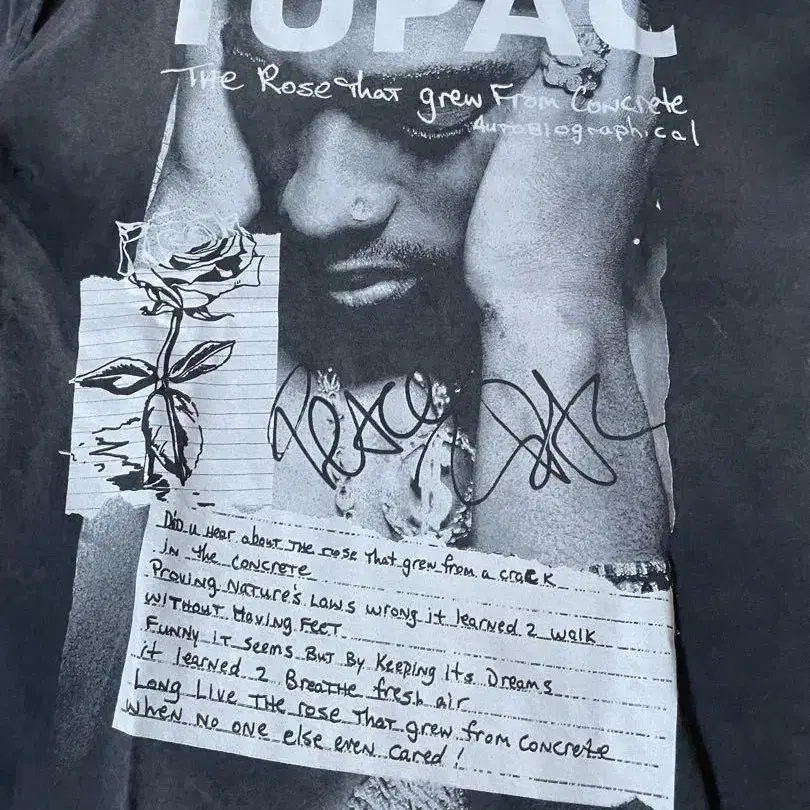 TUPAC
The Rose that grew From Concrete
Autobiographical
Peace
Did u Hear about The rose that grew from a crack
in the concrete
Proving Nature's Laws wrong it learned 2 walk
without Having Feet
Funny it seems But By Keeping its Dreams
it learned 2 Breathe fresh air
Long Live The rose That grew from concrete
when no one else even cared!